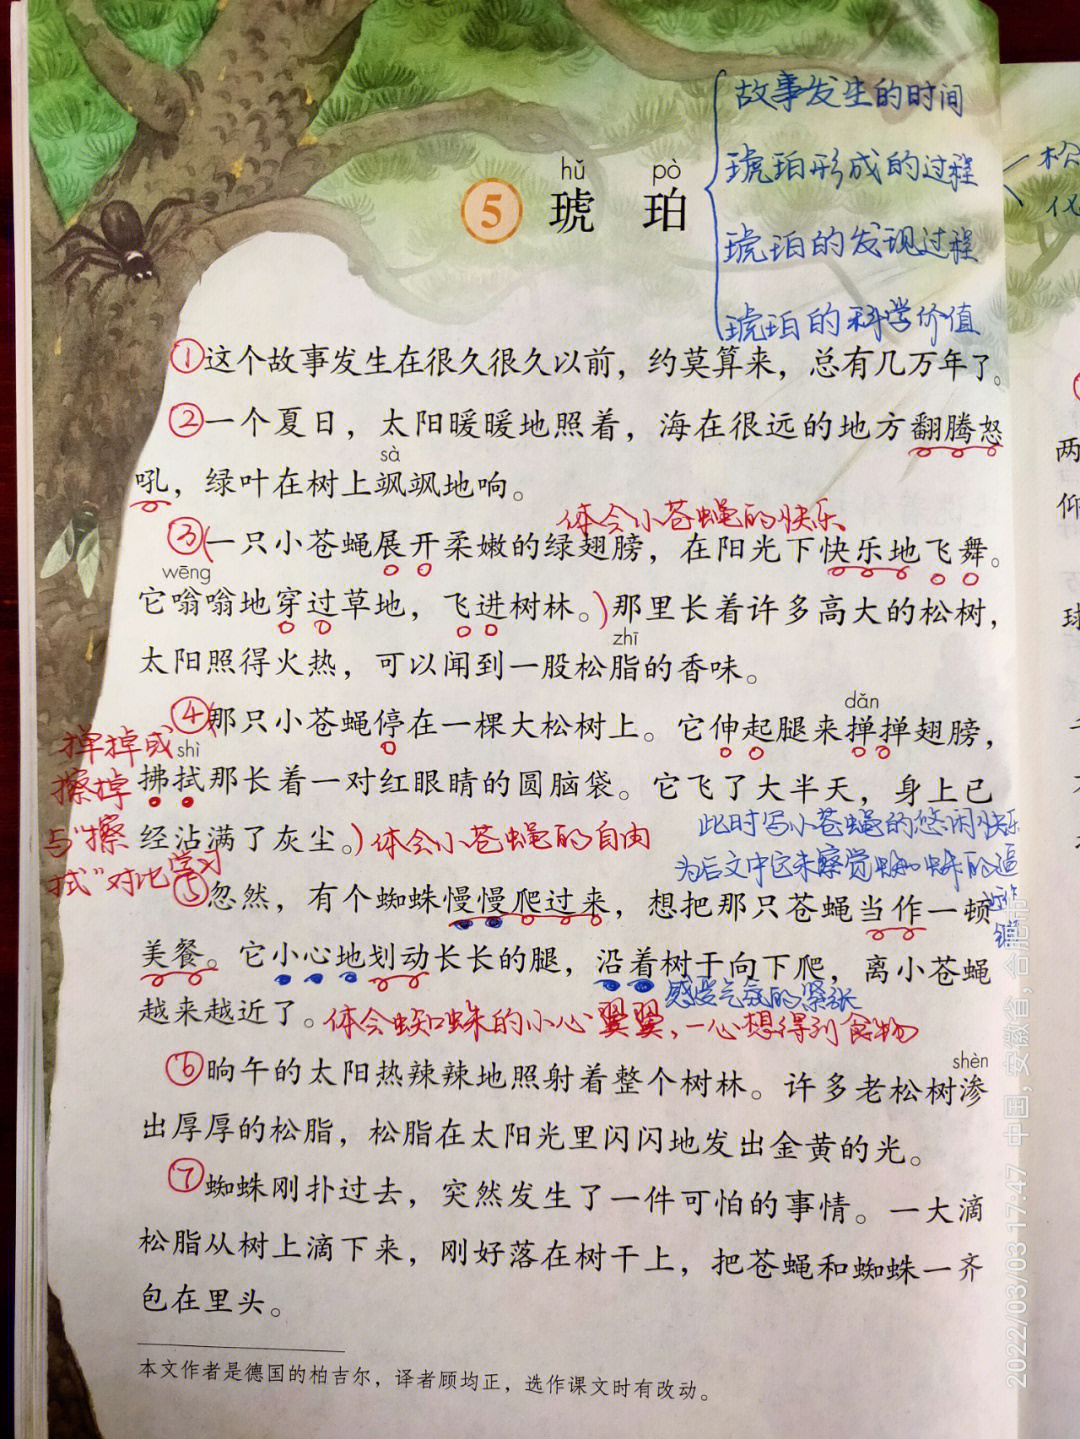 故事发生的时间
琥珀形成的过程
松
hǔ pò
5 琥 珀
琥珀的发现过程
琥珀的科学价值
①这个故事发生在很久很久以前，约莫算来，总有几万年了。
②一个夏日，太阳暖暖地照着，海在很远的地方翻腾怒
sà
吼，绿叶在树上飒飒地响。
体会小苍蝇的快乐
③(一只小苍蝇展开柔嫩的绿翅膀，在阳光下快乐地飞舞。
wēng
它嗡嗡地穿过草地，飞进树林。)那里长着许多高大的松树，
zhī
太阳照得火热，可以闻到一股松脂的香味。
④(那只小苍蝇停在一棵大松树上。它伸起腿来掸掸翅膀，
dǎn
掸掉或
shì
擦掉
拂拭那长着一对红眼睛的圆脑袋。它飞了大半天，身上已
与“擦
经沾满了灰尘。)体会小苍蝇的自由
此时写小苍蝇的悠闲快乐
为后文中它未察觉蜘蛛的逼
近作
拭”对比学习
⑤忽然，有个蜘蛛慢慢爬过来，想把那只苍蝇当作一顿
美餐。它小心地划动长长的腿，沿着树干向下爬，离小苍蝇
感受气氛的紧张
越来越近了。体会蜘蛛的小心翼翼，一心想得到食物
⑥晌午的太阳热辣辣地照射着整个树林。许多老松树渗
shèn
出厚厚的松脂，松脂在太阳光里闪闪地发出金黄的光。
⑦蜘蛛刚扑过去，突然发生了一件可怕的事情。一大滴
松脂从树上滴下来，刚好落在树干上，把苍蝇和蜘蛛一齐
包在里头。
本文作者是德国的柏吉尔，译者顾均正，选作课文时有改动。
两
仰
球
2022/03/03 17:47 中国，安徽省，合肥市